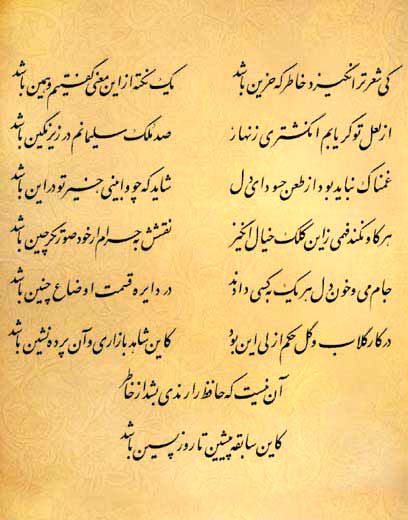 کی شعر تر انگیزد خاطر که حزین باشد یک نکته از این معنی گفتیم و همین باشد
از لعل تو گر یابم انگشتری زنهار صد ملک سلیمانم در زیر نگین باشد
غمناک نباید بود از طعن حسود ای دل شاید که چو وابینی خیر تو در این باشد
هر کاو نکند فهمی زین کلک خیال انگیز نقشش به حرام ار خود صورتگر چین باشد
جام می و خون دل هر یک به کسی دادند در دایره قسمت اوضاع چنین باشد
در کار گلاب و گل حکم ازلی این بود کاین شاهد بازاری وان پرده نشین باشد
آن نیست که حافظ را رندی بشد از خاطر
کاین سابقه پیشین تا روز پسین باشد